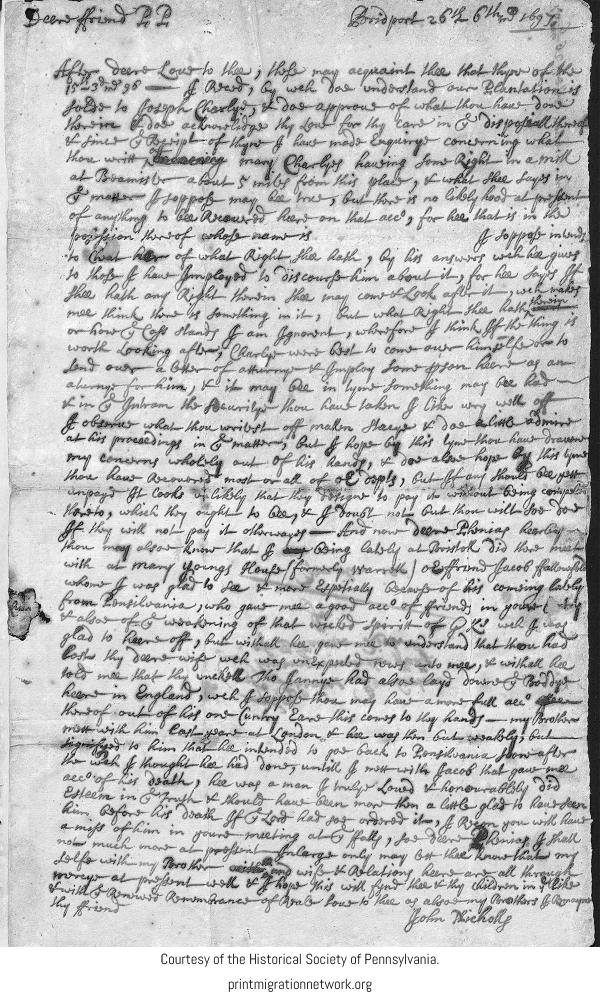 Deere ffriend P. P. Bridport 26th 6th mo 1697
After deere Love to thee, these may acquaint thee that thyne of the
15th 3d mo 96 I Reced, by wch doe understand our Plantation is
solde to Joseph Charlye, & doe approve of what thou have done
therein & doe acknowlidge thy Love for thy care in ye disposall thereof
& since ye Receipt of thyne I have made Enquirye concerning what
thou writt mary Charlyes having some Right in a mill
at Beamister about 5 miles from this place, & what shee sayes in
ye matter I soppose may bee true, but there is no likely hood at present
of anything to bee Recovered heere on that acct, for hee that is in the
possion thereof whose name is I soppose intends
to Cheat her of what Right shee hath, by his answers wch hee gives
to those I have Imployed to discourse him about it, for hee sayes If
shee hath any Right therein shee may come & Look after it, wch makes
mee think there is something in it, but what Right shee hath therein
or how ye Case stands I am Ignorent, wherefore I think If the thing is
worth Looking after, Charlye were best to come over himselfe or to
send over a letter of atturnye & Imploy some pson heere as an
aturnye for him, & it may bee in tyme something may bee had
& in ye Intram the securitye thou have taken I like very well off
I observe what thou writest off & doe a little admire
at his proceedings in ye matter, but I hope by this tyme thou have drawne
my concerns wholely out of his hands, & doe alsoe hope by this tyme
thou have Recovered most or all of ye , but If any should bee yett
unpayd It Looks unlikely that they designe to pay it without being compelled
thereto, which they ought to bee, & I doubt not but thou wilt soe doe
If they will not pay it otherwayes And now deere Phenias hearby
thou may alsoe know that I being lately at Bristoll did there meet
with at mary youngs House (formerly Warrell) or ffriend Jacob ffallowfild
whome I was glad to see & more Espetially because of his comeing lately
from Pensilvania, who gave mee a good acct of ffriends in youre
& alsoe of ye weakening of that wicked spiritt of G.K. wch I was
glad to heere off, but withall hee gave mee to understand that thou had
Lost thy deere wife wch was unExpected news unto mee, & withall hee
told mee that thy unckell Tho Jannye had alsoe layd downe ye Boddye
heere in England, wch I soppose thou may have a more full acct
thereof out of his one Cuntry Eare this comes to thy hands my Brother
mett with him Last yeare at London & hee was then but weakly, but
signifyed to him that hee intended to goe back to Pensilvania soone after
the wch I thought hee had done, untill I mett with Jacob that gave mee
acct of his death, hee was a man I truly Loved & honourablely did
Esteem in ye Truth & should have been more then a little glad to have seen
him before his death If ye Lord had soe ordered it, I Recon you will have
a miss of him in youre meeting at ye ffalls, soe deere Phenias I shall
not much more at present Inlarge only may lett thee know that my
selfe with my Brother and wife & Relations heere are all through
mercye at present well & I hope this will fynd thee & thy children in ye Like
& with ye Renewed Remembrance of Reale Love to thee as alsoe my Brothers I Remayne
thy ffriend
John Nicholls
Courtesy of the Historical Society of Pennsylvania.
printmigrationnetwork.org